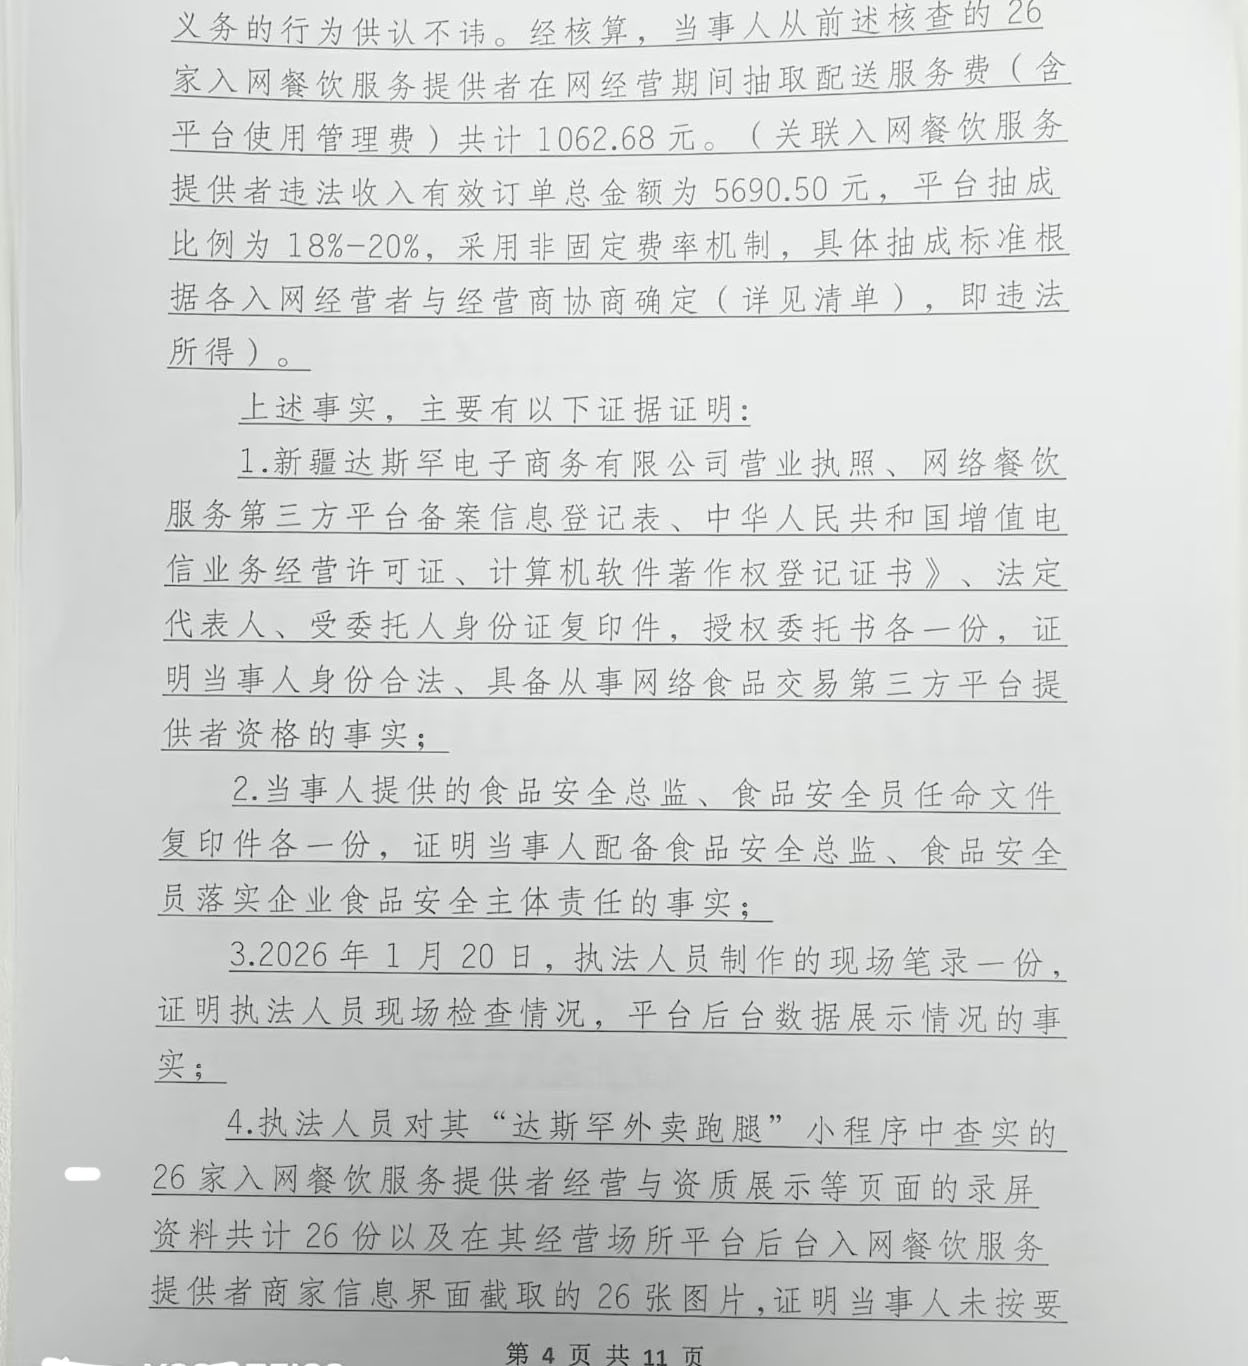 义务的行为供认不讳。经核算，当事人从前述核查的 26
家入网餐饮服务提供者在网经营期间抽取配送服务费（含
平台使用管理费）共计 1062.68 元。（关联入网餐饮服务
提供者违法收入有效订单总金额为 5690.50 元，平台抽成
比例为 18%-20%，采用非固定费率机制，具体抽成标准根
据各入网经营者与经营商协商确定（详见清单），即违法
所得）。
上述事实，主要有以下证据证明：
1.新疆达斯罕电子商务有限公司营业执照、网络餐饮
服务第三方平台备案信息登记表、中华人民共和国增值电
信业务经营许可证、计算机软件著作权登记证书》、法定
代表人、受委托人身份证复印件，授权委托书各一份，证
明当事人身份合法、具备从事网络食品交易第三方平台提
供者资格的事实；
2.当事人提供的食品安全总监、食品安全员任命文件
复印件各一份，证明当事人配备食品安全总监、食品安全
员落实企业食品安全主体责任的事实；
3.2026 年 1 月 20 日，执法人员制作的现场笔录一份，
证明执法人员现场检查情况，平台后台数据展示情况的事
实；
4.执法人员对其“达斯罕外卖跑腿”小程序中查实的
26 家入网餐饮服务提供者经营与资质展示等页面的录屏
资料共计 26 份以及在其经营场所平台后台入网餐饮服务
提供者商家信息界面截取的 26 张图片,证明当事人未按要
第 4 页 共 11 页